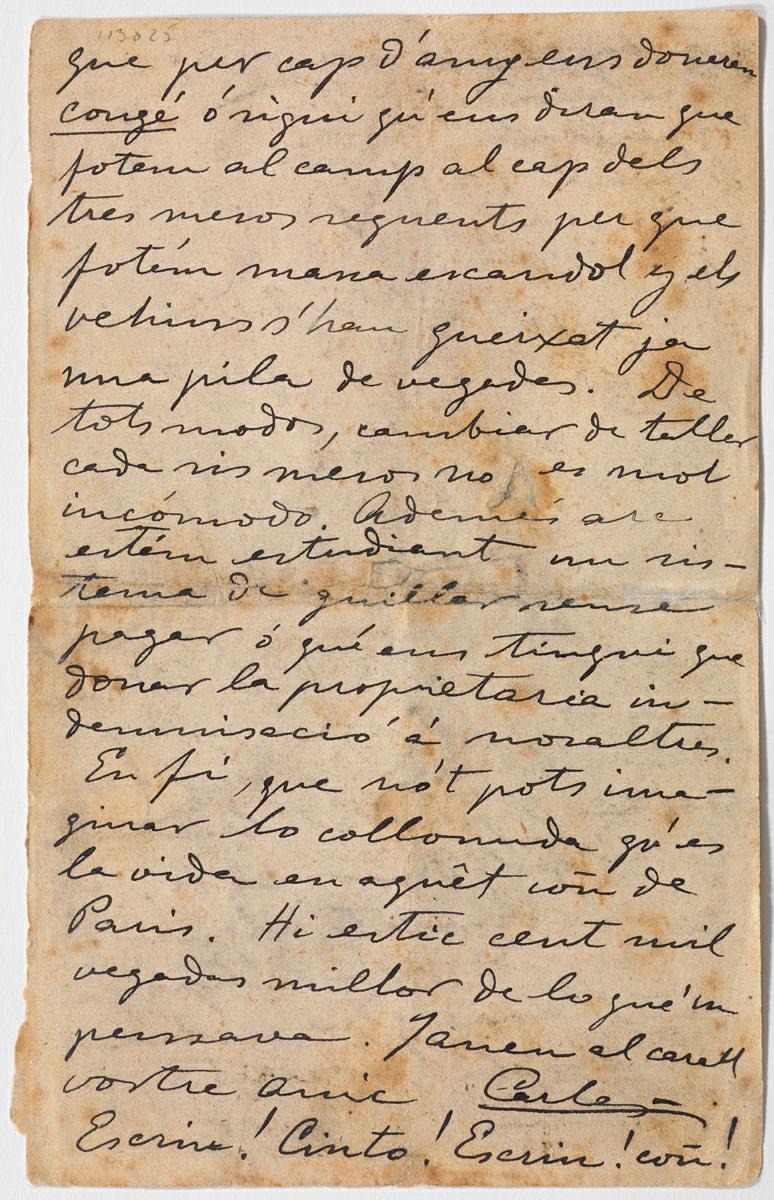 113825
que per cap d'any ens doneren
congé ó sigui qu'ens diran que
fotem al camp al cap dels
tres mesos seguents per que
fotém massa escandol y els
vehins s'han queixat ja
una pila de vegades. De
tots modos, cambiar de taller
cada sis mesos no es mol
incómodo. Además are
estém estudiant un sis-
tema de guillar sense
pagar ó qué ens tingui que
donar la propietaria in-
demnisació á nosaltres.
En fí, que no't pots ima-
ginar lo collonuda qu'es
la vida en aquêt coñ de
Paris. Hi estic cent mil
vegadas millor de lo qué'm
pensava. al carall
vostre amic Carles
Escriu! Cinto! Escriu! coñ!